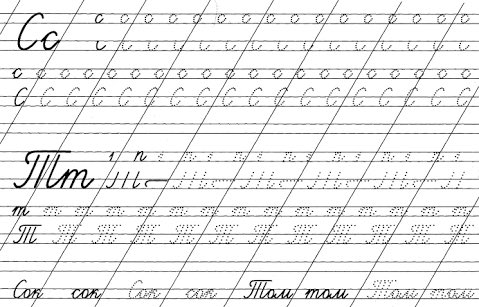 Сс
с с с с с с с с с с с с с с с с с с с с
С С С С С С С С С С С С С С С С С С
Тт
т т т т т т т т т т т т т т т
Т Т Т Т Т Т Т Т Т Т Т Т
Сок сок Сок сок Том том Том том